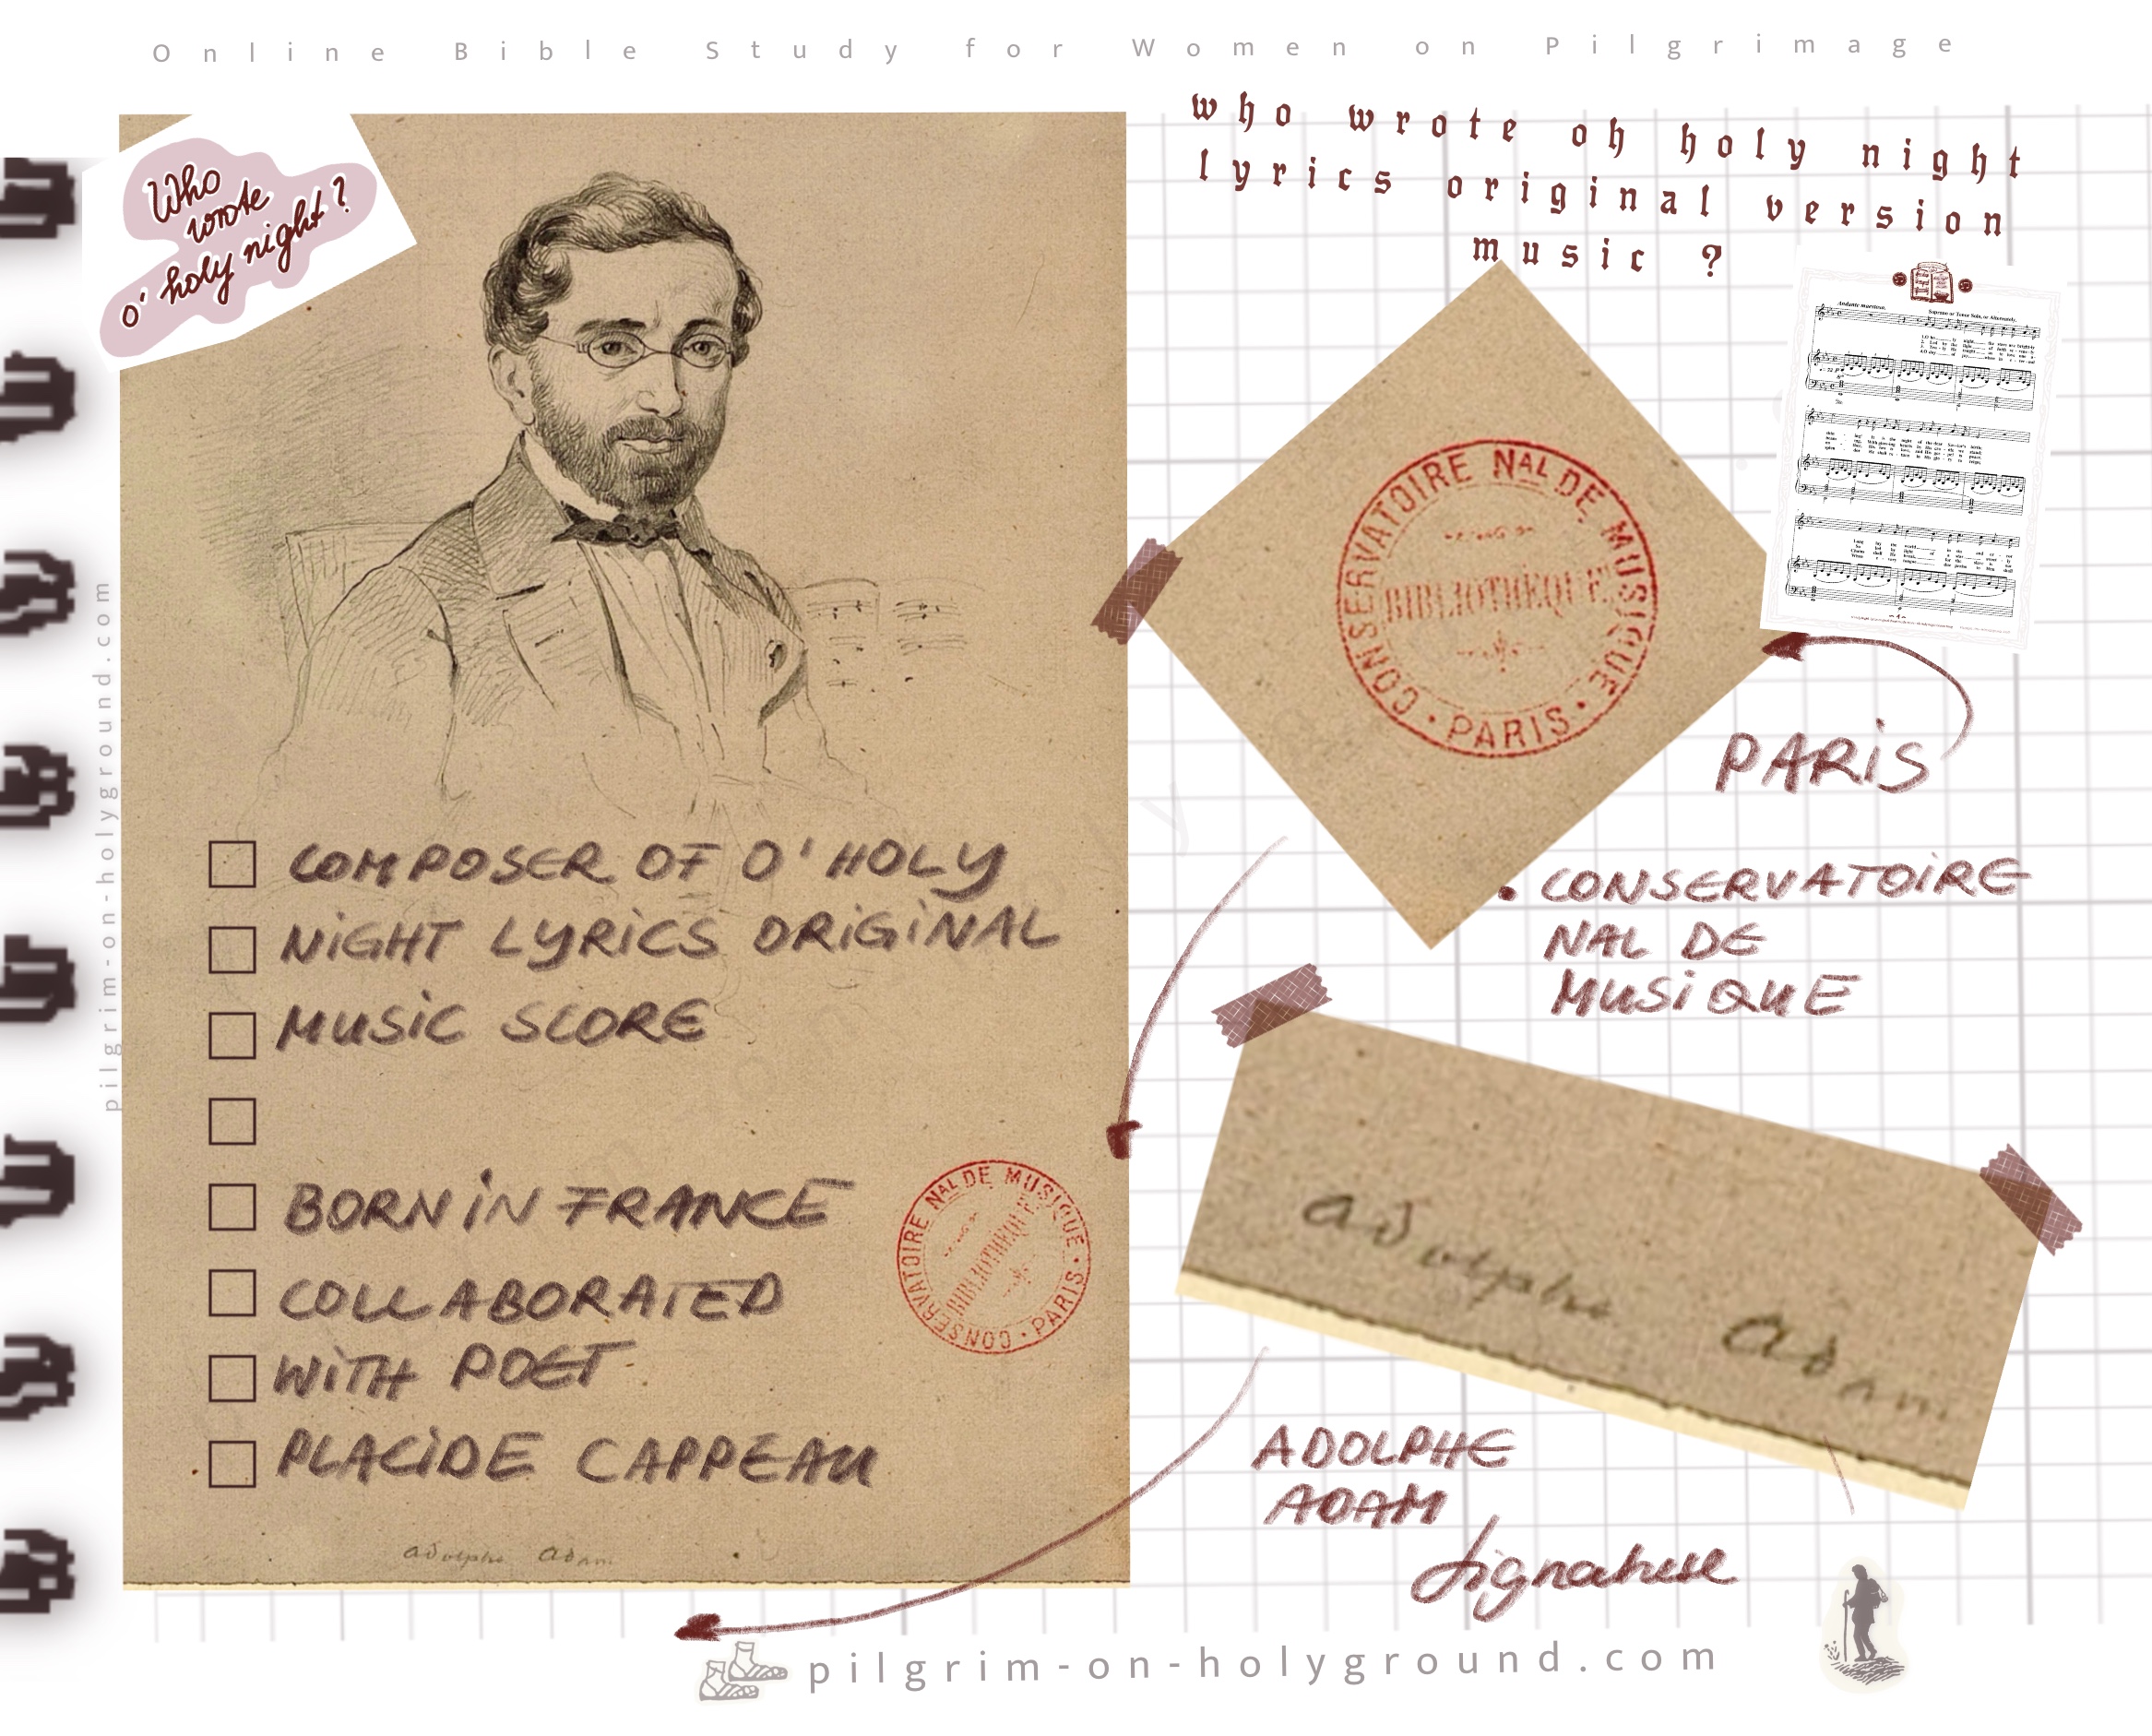 Online Bible Study for Women on Pilgrimage
Who
wrote
o' holy night?
who wrote oh holy night
lyrics original version
music ?
Andante maestoso.
Soprano or Tenor Solo, or Alternately.
CONSERVATOIRE NAL DE MUSIQUE
BIBLIOTHÈQUE
· PARIS ·
PARiS
pilgrim-on-holyground.com
COMPOSER OF O' HOLY
NiGHT LYRiCS ORiGiNAL
MUSiC SCORE
BORN iN FRANCE
COLLABORATED
WiTH POET
PLACiDE CAPPEAU
CONSERVATOIRE NAL DE MUSIQUE
BIBLIOTHÈQUE
· PARIS ·
adolphe adam
• CONSERVATOiRE
NAL DE
MUSiQUE
adolphe adam
ADOLPHE
ADAM
signature
pilgrim-on-holyground.com